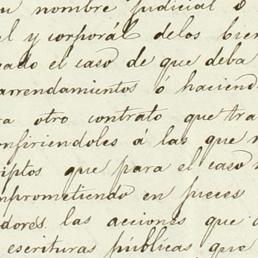 nombre judicial ó
el y corporál delos bien
ado el caso de que deba
arrendamientos ó haciend
ra otro contrato que tra
nfiriendoles á las que
iptos que para el caso
mprometiendo en jueces
dores las acciones que
escrituras públicas que